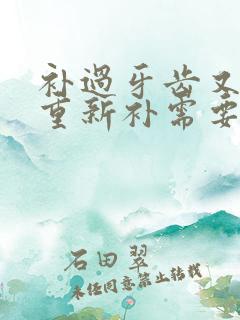 补过牙齿又
重新补需要
石田翠
未经同意禁止转载